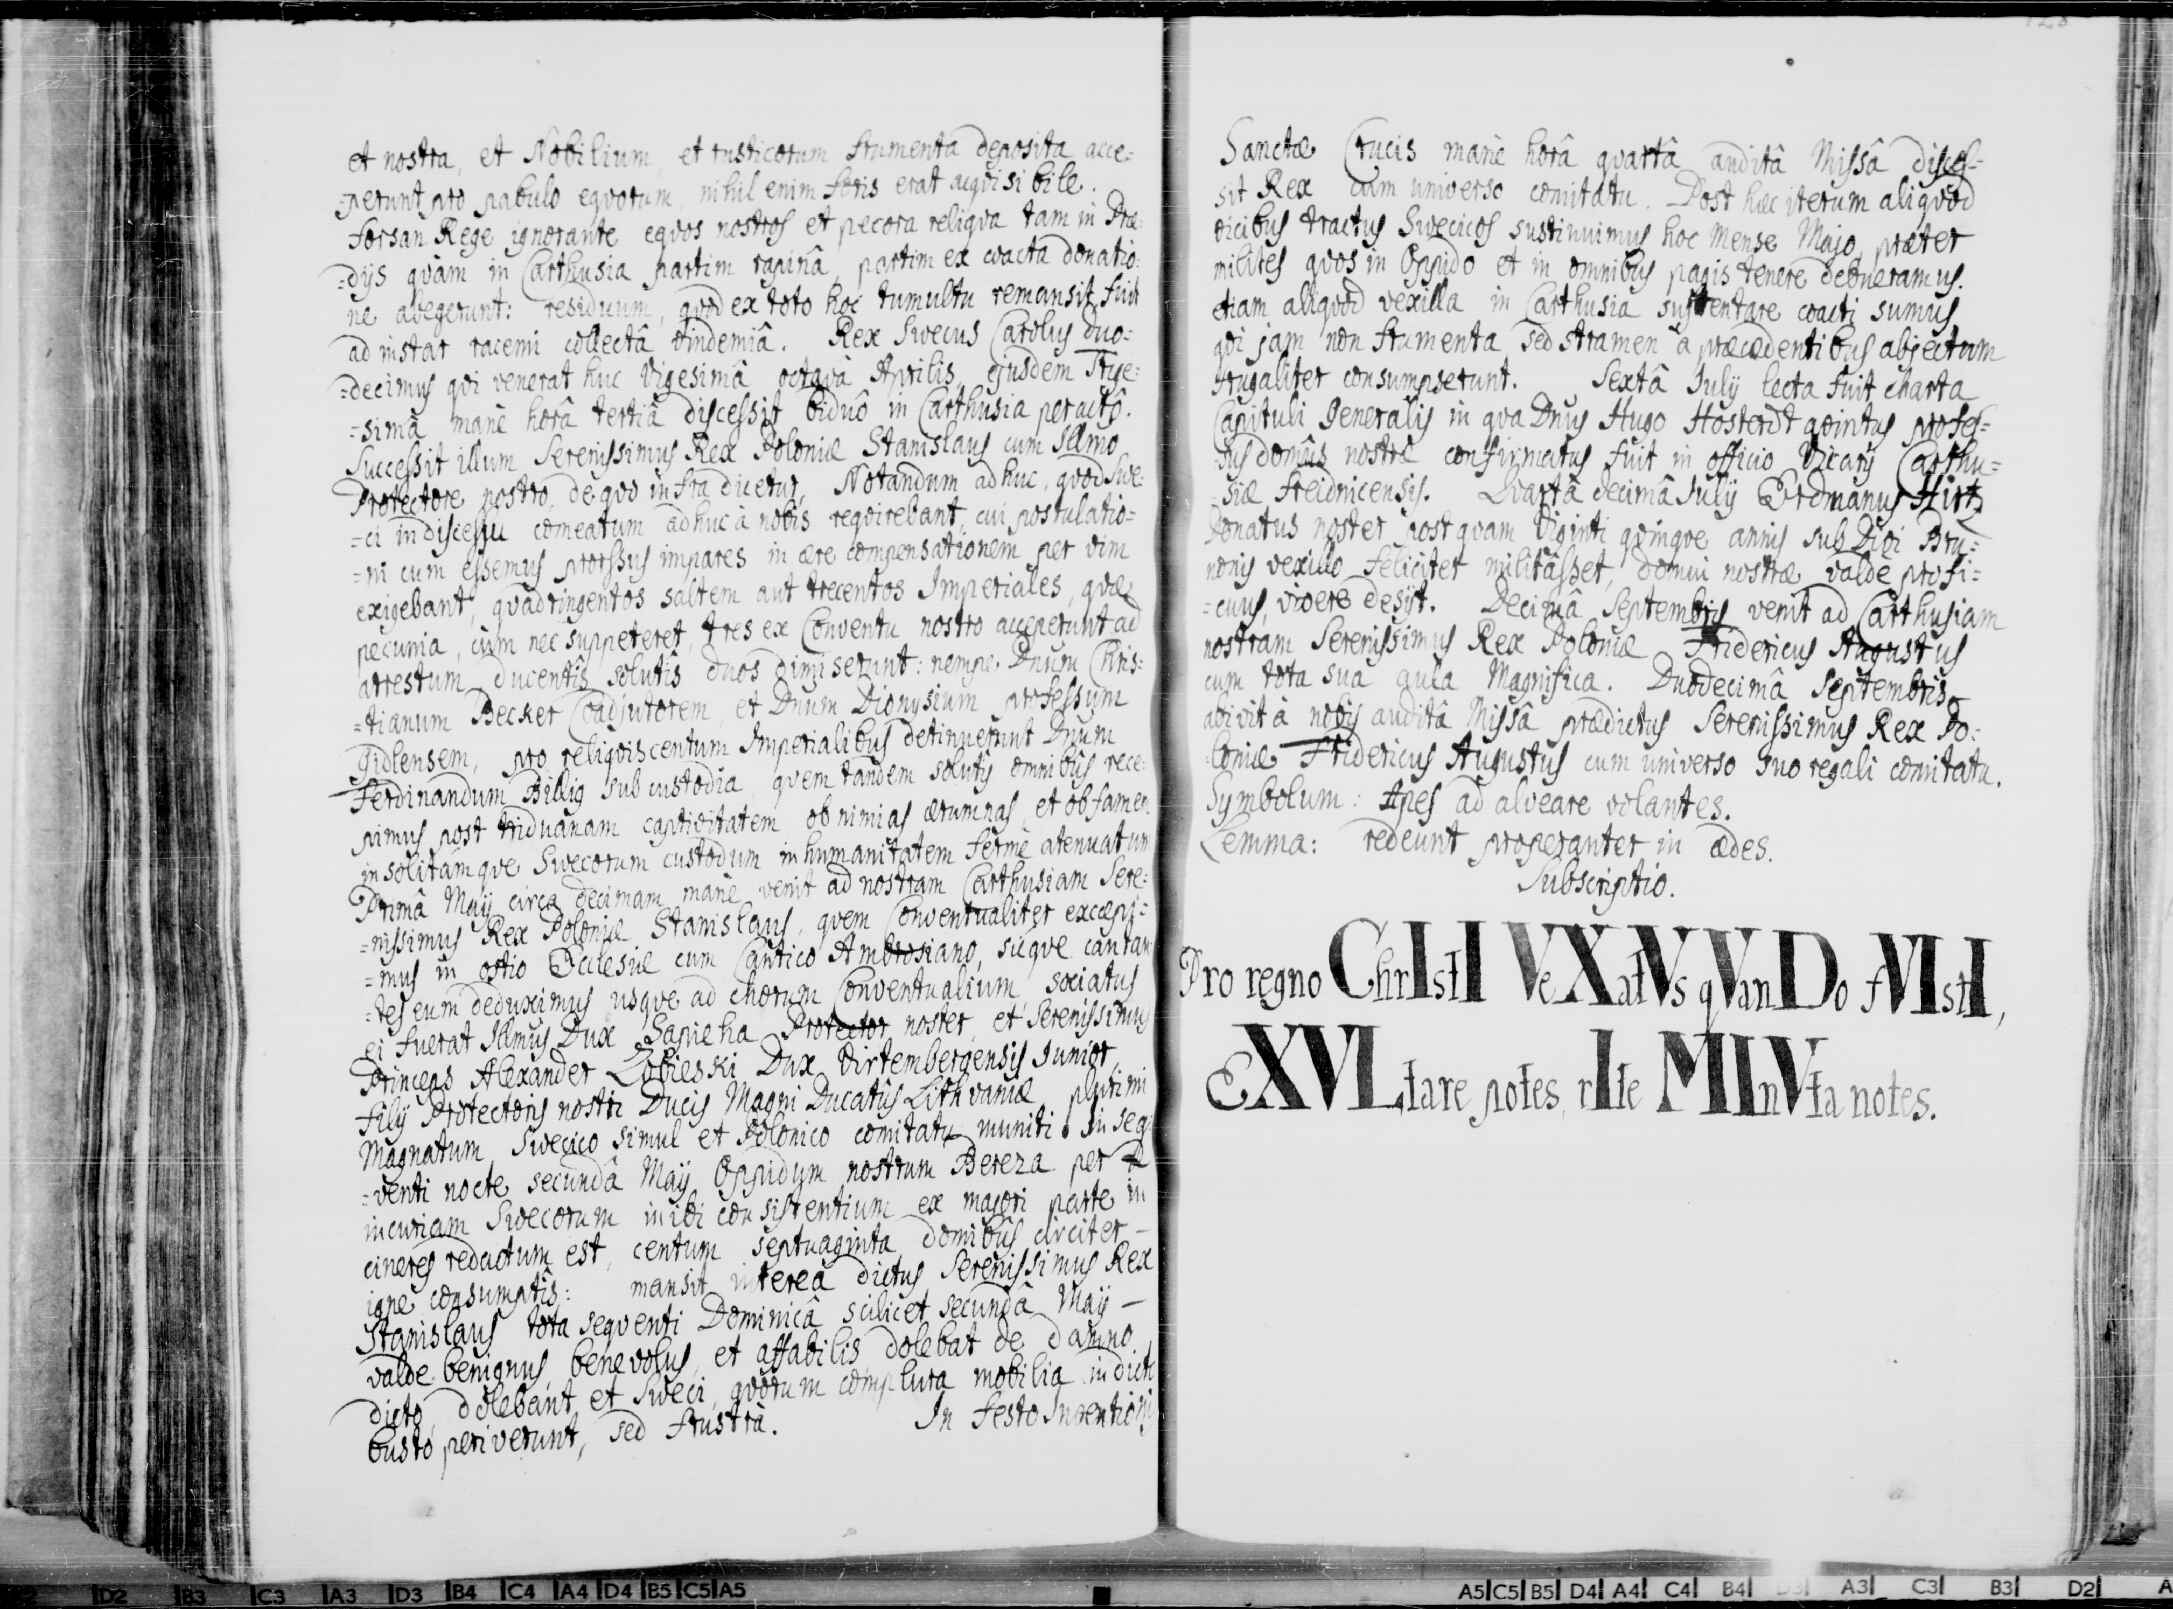 et nostra, et Nobilium, et rusticorum frumenta deposita acce=
=perunt pro pabulo equorum, nihil enim foris erat acquisibile.
forsan Rege ignorante equos nostros et pecora reliqva tam in Præ=
=dijs qvàm in Carthusia partim rapinâ, partim ex coacta donatio=
ne abegerunt: residuum, qvod ex toto hoc tumultu remansit, fuit
ad instar racemi collectâ vindemiâ. Rex Swecus Carolus duo=
=decimus qvi venerat huc Vigesimâ octavâ Aprilis, ejusdem Trige=
=simâ manè horâ tertiâ discessit biduô in Carthusia peractô.
Successit illum Serenissimus Rex Poloniæ Stanislaus cum Illmo
Protectore nostro, de qvo infra dicetur. Notandum adhuc, qvod Swe=
=ci in discessu comeatum adhuc à nobis reqvirebant, cui postulatio=
=ni cum essemus prorssus impares in ære compensationem per vim
exigebant, qvadringentos saltem aut trecentos Imperiales, qvæ
pecunia, cùm nec suppeteret, tres ex Conventu nostro acceperunt ad
arrestum, ducentis solutis duos dimiserunt: nempe Dnum Chris=
=tianum Becker Coadjutorem, et Dnum Dionysium professum
Gidlensem, pro reliqvis centum Imperialibus detinuerunt Dnum
Ferdinandum Billig sub custodia, qvem tandem solutis omnibus rece=
pimus post triduanam captivitatem ob nimias ærumnas, et ob famem
insolitamqve Swecorum custodum inhumanitatem fermè atenuatum
Primâ Maij circa decimam manè venit ad nostram Carthusiam Sere=
=nissimus Rex Poloniæ Stanislaus, qvem Conventualiter excæpi=
=mus in ostio Ecclesiæ cum Cantico Ambrosiano, sicqve cantan=
=tes eum deduximus usqve ad chorum Conventualium, sociatus
ei fuerat Illmus Dux Sapieha Protector noster, et Serenissimus
Princeps Alexander Sobieski Dux Virtembergensis Junior,
filij Protectoris nostri Ducis Magni Ducatûs Lithvaniæ, plurimi
Magnatum, Swecico simul et Polonico comitatu muniti. In seq=
=venti nocte secundâ Maij Oppidum nostrum Bereza per
incuriam Swecorum inibi consistentium ex majori parte in
cineres redactum est, centum septuaginta domibus circiter –
igne consumptis: mansit intereà dictus Serenissimus Rex
Stanislaus tota seqventi Dominicâ scilicet secundâ Maij –
valde benignus, benevolus, et affabilis dolebat de damno
dicto, dolebant et Sweci, qvorum complura mobilia in dicto
busto periverunt, sed frustrà. In festo Inventionis
Sanctæ Crucis manè horâ qvartâ auditâ Missâ disces=
sit Rex cum universo comitatu. Post hæc iterum aliqvod
vicibus tractus Swecicos sustinuimus hoc mense Majo, præter
milites qvos in Oppido et in omnibus pagis tenere debueramus.
etiam aliqvod vexilla in Carthusia sustentare coacti sumus,
qvi jam non frumenta sed stramen à præcedentibus abjectum
frugaliter consumpserunt. Sextâ Julij lecta fuit charta
Capituli Generalis in qva Dnus Hugo Hosterdt qvintus profes=
=sus domûs nostræ confirmatus fuit in officio Vicarij Carthu=
=siæ Freidnicensis. Qvartâ decimâ Julij Erdmanus Hirtz
Donatus noster postqvam Viginti qvinqve annis sub Divi Bru=
nonis vexillo feliciter militâsset, domui nostræ valde profi=
=cuus, vivere desijt. Decimâ Septembris venit ad Carthusiam
nostram Serenissimus Rex Poloniæ Fridericus Augustus
cum tota sua aula Magnifica. Duodecimâ Septembris
abivit à nobis auditâ Missâ prædictus Serenissimus Rex Po=
=loniæ Fridericus Augustus cum universo suo regali comitatu.
Symbolum: Apes ad alveare volantes.
Lemma: redeunt properanter in ædes.
Subscriptio.
Pro regno ChrIstI VeXatVs qVanDo fVIstI,
EXVLtare potes, rIte MIInVta notes.